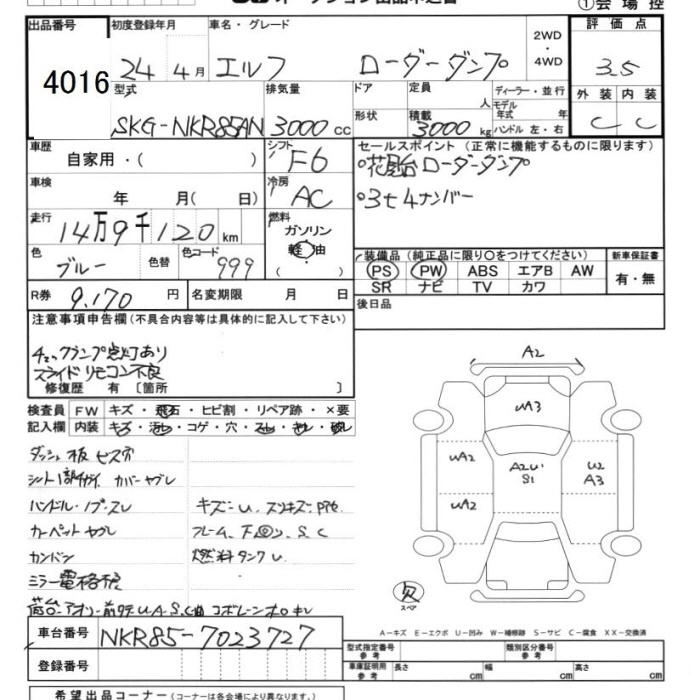 ①会場控
出品番号 初度登録年月 車名・グレード 2WD・4WD 評価点
4016 24年4月 エルフ ローダーダンプ 3.5
型式 排気量 ドア 定員 人 ディーラー・並行 外装 内装
SKG-NKR85AN 3000cc 形状 積載 3000kg モデル年式 年 ハンドル 左・右 C C
車歴 自家用・( ) シフト F6 セールスポイント (正常に機能するものに限ります)
荷台ローダーダンプ
車検 年 月( 日) 冷房 AC
3t4ナンバー
走行 14万9千120km 燃料 ガソリン 軽油
色 ブルー 色替 色コード 999
装備品 (純正品に限り○をつけてください) 新車保証書
PS PW ABS エアB AW 有・無
SR ナビ TV カワ
R券 9,170円 名変期限 月 日 後日品
注意事項申告欄(不具合内容等は具体的に記入して下さい)
チェックランプ点灯あり
スライドリモコン不良
修復歴 有 [箇所 ]
検査員 FW キズ・飛石・ヒビ割・リペア跡・×要
記入欄 内装 キズ・汚レ・コゲ・穴・スレ・キレ・ヤブレ
ダッシュ板ビス穴
カバーヤブレ
ハンドル・ノブ・スレ キズ・U
カーペットヤブレ フレーム、下回リ、S.C
カンバン 燃料タンクU
ミラー電格
荷台アオリ
A2
UA3
UA2 A2U S1 U2 A3
UA2
欠
スペア
A-キズ E-エクボ U-凹み W-補修跡 S-サビ C-腐食 XX-交換済
車台番号 NKR85-7023727
型式指定番号 参考 類別区分番号 参考
登録番号
車庫証明用 参考 長さ cm 幅 cm 高さ cm
希望出品コーナー(コーナーは各会場により異なります。)